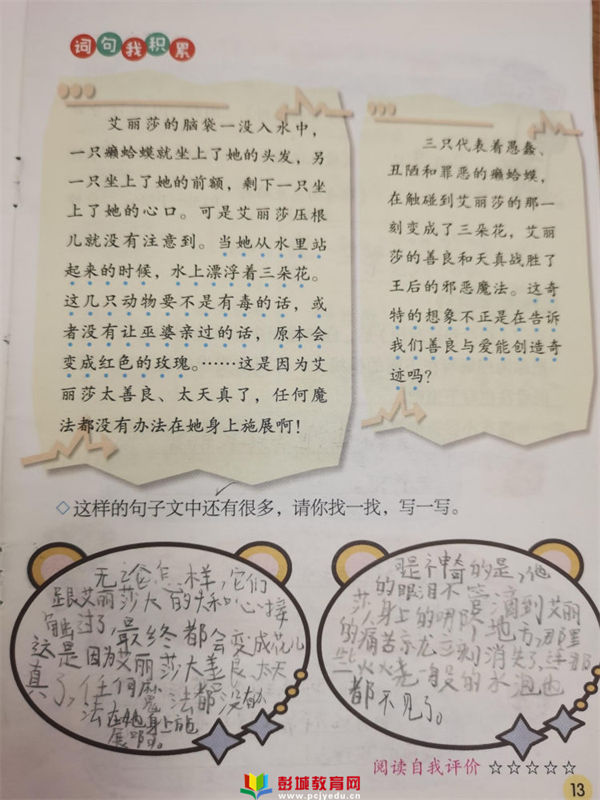 词句我积累
艾丽莎的脑袋一没入水中，
一只癞蛤蟆就坐上了她的头发，另
一只坐上了她的前额，剩下一只坐
上了她的心口。可是艾丽莎压根
儿就没有注意到。当她从水里站
起来的时候，水上漂浮着三朵花。
这几只动物要不是有毒的话，或
者没有让巫婆亲过的话，原本会
变成红色的玫瑰。……这是因为艾
丽莎太善良、太天真了，任何魔
法都没有办法在她身上施展啊！
三只代表着愚蠢、
丑陋和罪恶的癞蛤蟆，
在触碰到艾丽莎的那一
刻变成了三朵花，艾丽
莎的善良和天真战胜了
王后的邪恶魔法。这奇
特的想象不正是在告诉
我们善良与爱能创造奇
迹吗？
◇这样的句子文中还有很多，请你找一找，写一写。
无论怎样，它们
跟艾丽莎大的和心接
过了，最终都会变成花儿
这是因为艾丽莎太善良、太天
真了，任何魔法都没有办
法在她身上施
展啊。
神奇的是，他
的眼泪不滴到艾丽
莎身上的哪个地方，那里
的痛苦立刻消失了，连那
些火烧一般的水泡也
都不见了。
阅读自我评价 ☆☆☆☆☆
彭城教育网
www.pcjyedu.cn
13